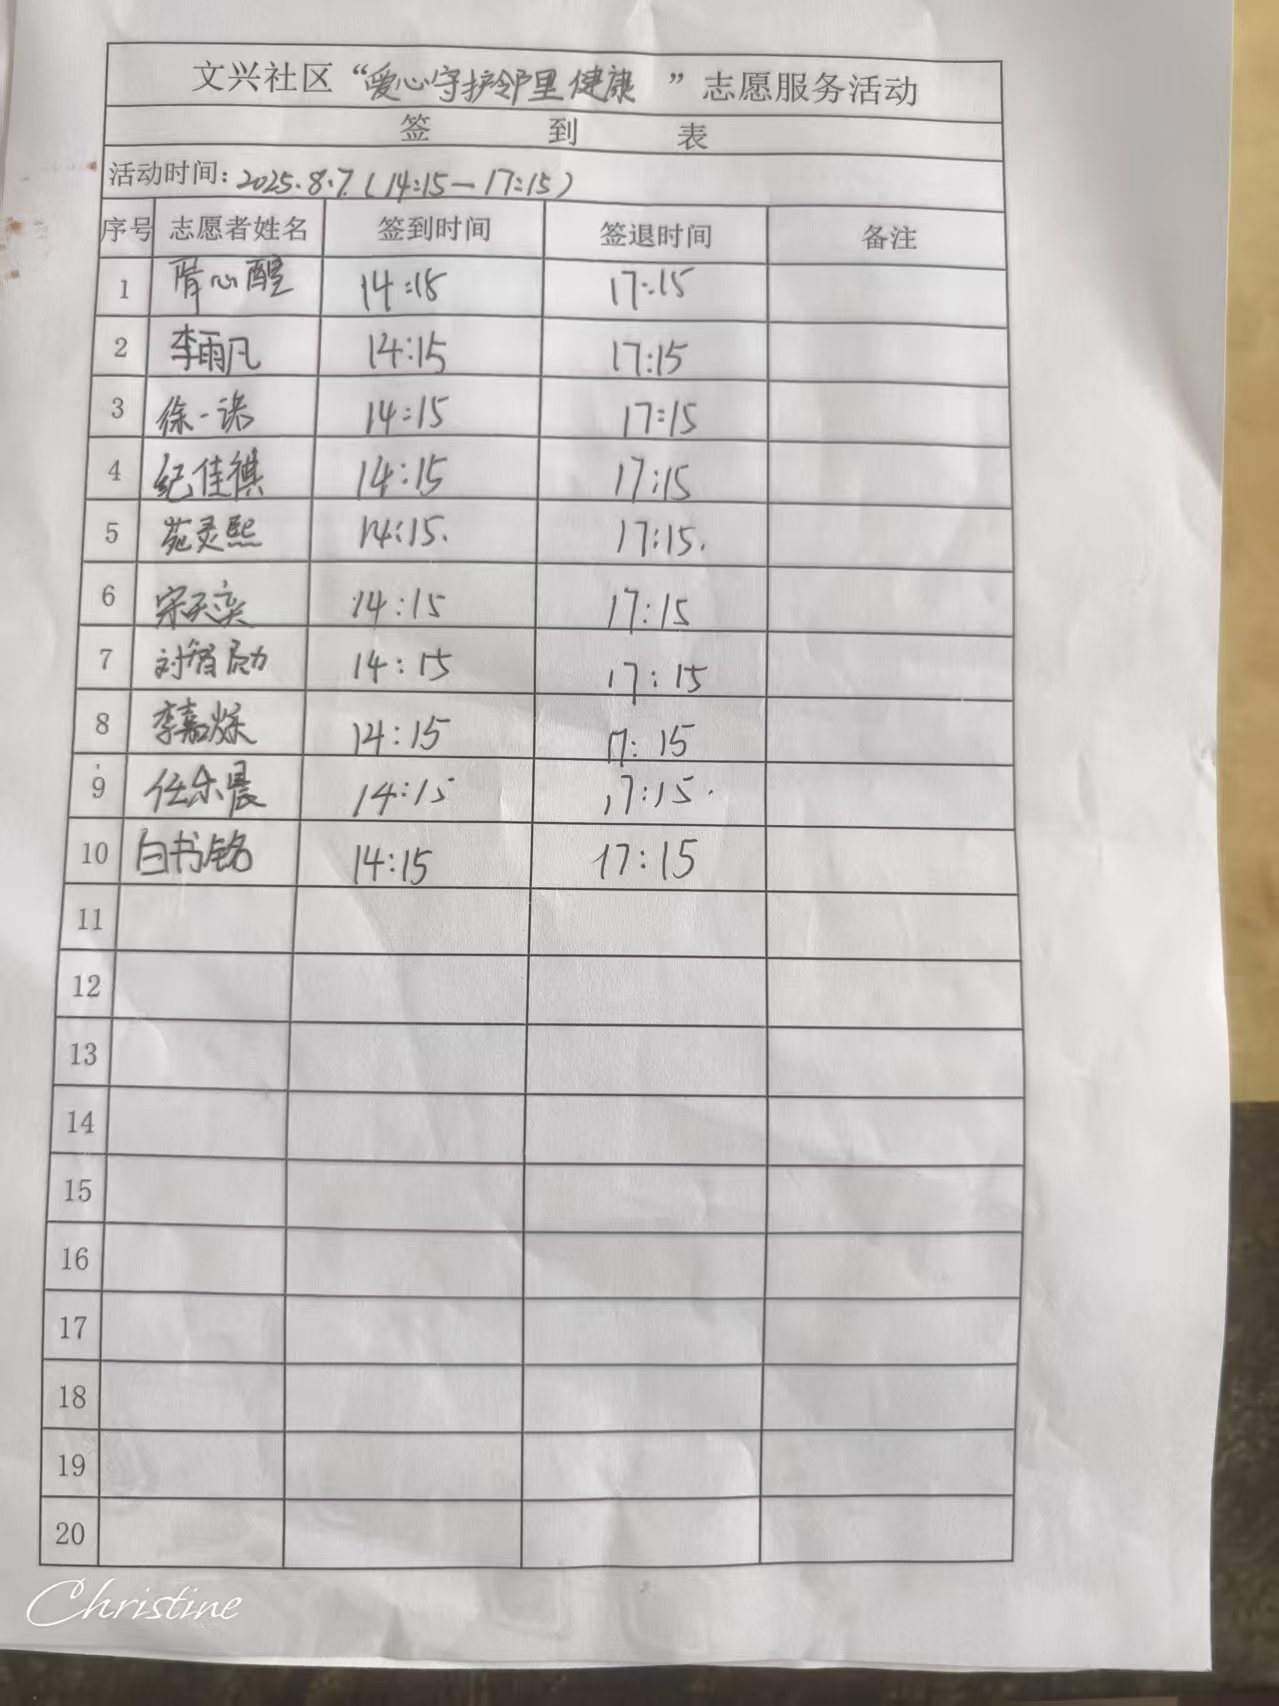 文兴社区“爱心守护邻里健康 ”志愿服务活动
签 到 表
活动时间: 2025.8.7.(14:15—17:15)
序号 志愿者姓名 签到时间 签退时间 备注
1 心醒 14:15 17:15
2 李雨凡 14:15 17:15
3 徐一诺 14:15 17:15
4 纪佳祺 14:15 17:15
5 苑灵熙 14:15. 17:15.
6 宋天奕 14:15 17:15
7 刘智勋 14:15 17:15
8 李嘉烁 14:15 17:15
9 任乐晨 14:15 17:15.
10 白书铭 14:15 17:15
11
12
13
14
15
16
17
18
19
20
Christine